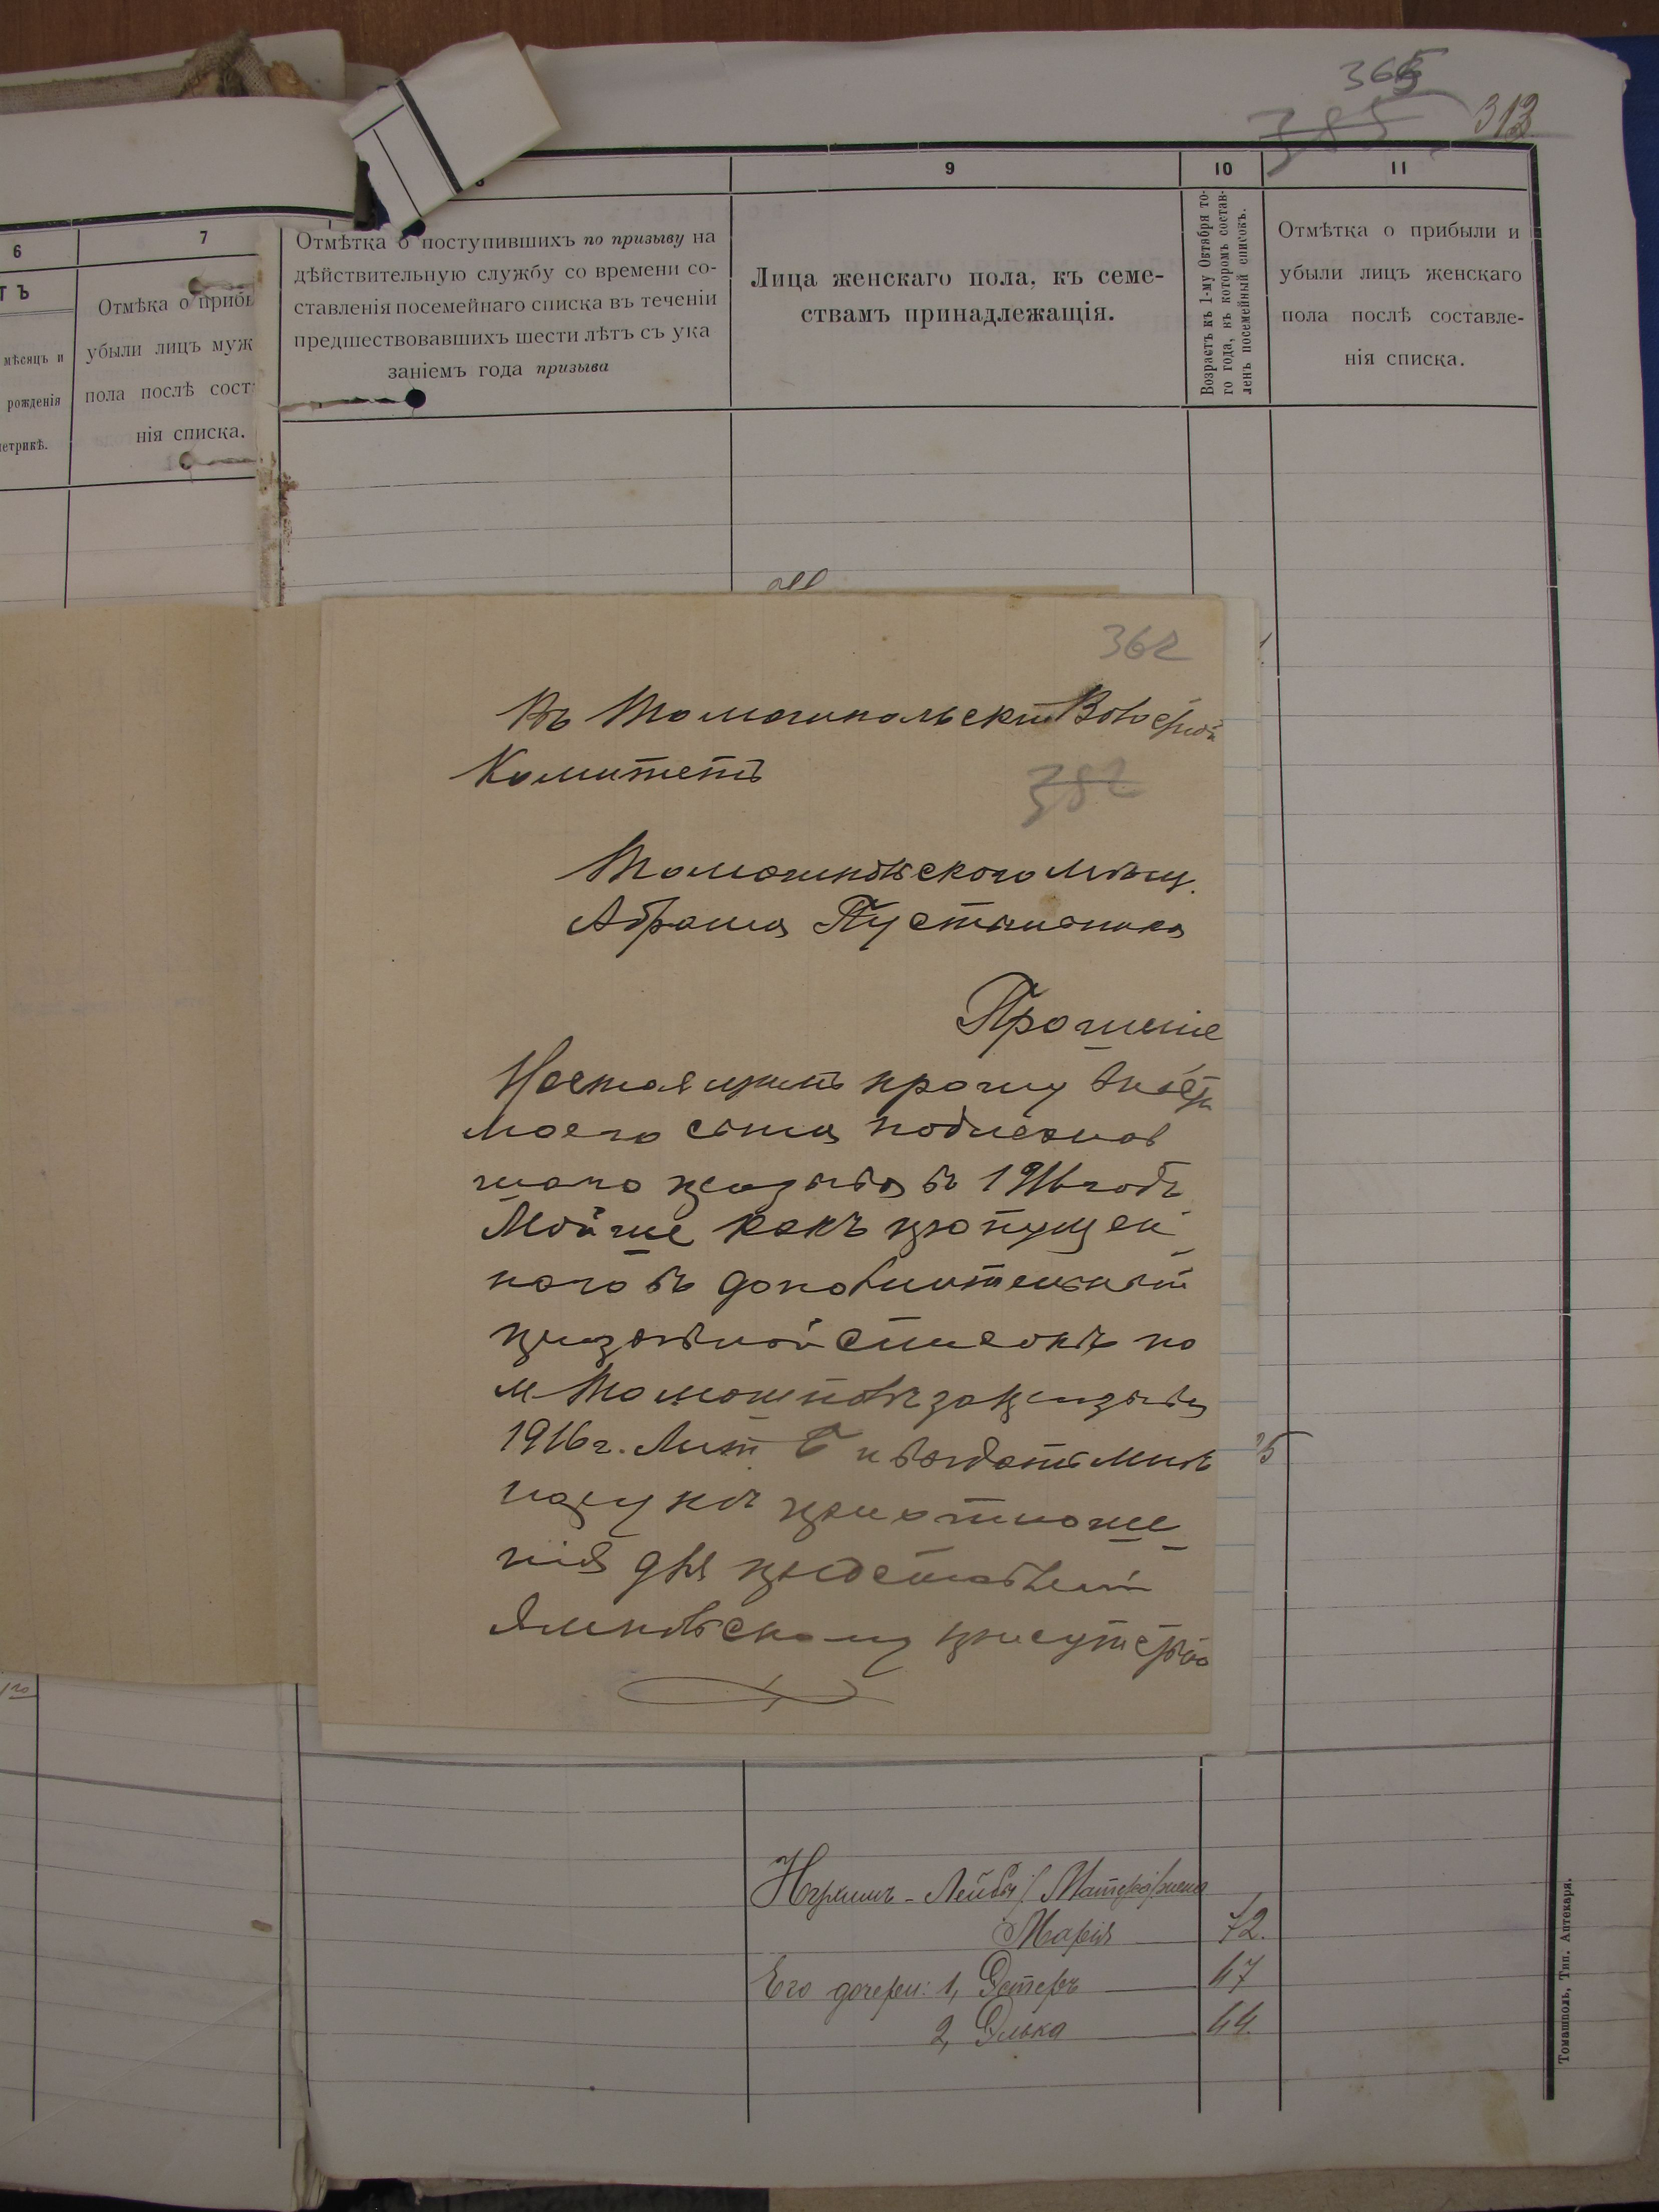 365
385
313
6
7
9
10
11
мѣсяцъ и
рожденія
етрикѣ.
Отмѣка о прибы
убыли лицъ муж
пола послѣ сост
нія списка.
Отмѣтка о поступившихъ по призыву на
дѣйствительную службу со времени со-
ставленія посемейнаго списка въ теченіи
предшествовавшихъ шести лѣтъ съ ука
заніемъ года призыва
Лица женскаго пола, къ семе-
ствамъ принадлежащія.
Возрастъ къ 1-му Октября то-
го года, въ которомъ состав-
ленъ посемейный списокъ.
Отмѣтка о прибыли и
убыли лицъ женскаго
пола послѣ составле-
нія списка.
362
Въ Томашпольскій
Комитетъ
382
Томашпольского мѣщ.
Абрама
Прошеніе
Настоящимъ прошу внести
моего сына подлежав
шаго призыва въ 1916 годъ
Мойше какъ пропущен
наго въ дополнительный
призывной списокъ по
м Томашполь за призывъ
1916 г. Лит Б и выдать мнѣ
для
Ямпольскому присутствію
Матеръ
Марія 72.
Его дочери: 1, Эстеръ 47
2, Элька 44.
Томашполь, Тип. Аптекаря.